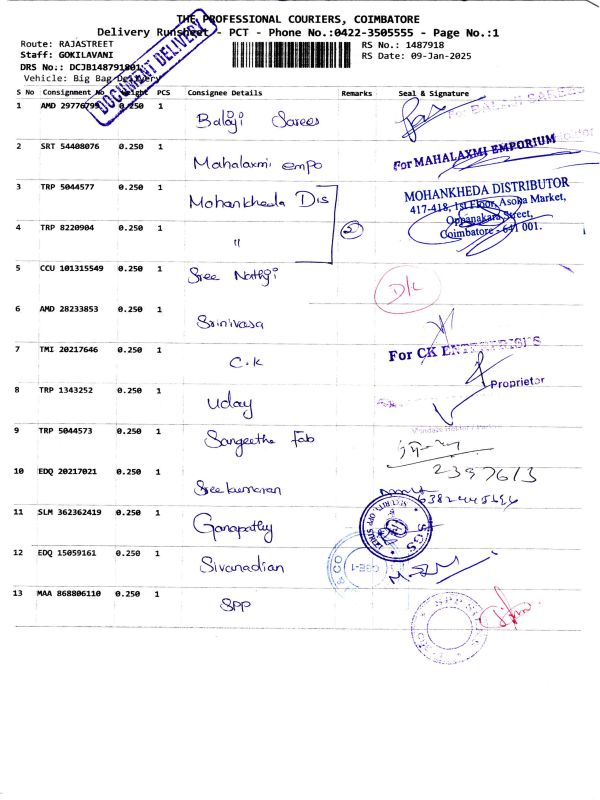 THE PROFESSIONAL COURIERS, COIMBATORE
Delivery Runsheet - PCT - Phone No.:0422-3505555 - Page No.:1
Route: RAJASTREET
RS No.: 1487918
Staff: GOKILAVANI
RS Date: 09-Jan-2025
DRS No.: DCJB148791801
Vehicle: Big Bag Delivery
DOCUMENT DELIVERY
S No Consignment No Weight PCS Consignee Details Remarks Seal & Signature
1 AMD 29776795 0.250 1 Balaji Sarees For BALAJI SAREES
2 SRT 54408076 0.250 1 Mahalaxmi empo For MAHALAXMI EMPORIUM
3 TRP 5044577 0.250 1 Mohankheda Dis
4 TRP 8220904 0.250 1 " 2
MOHANKHEDA DISTRIBUTOR
417-418, 1st Floor, Asoka Market,
Oppanakara Street,
Coimbatore - 641 001.
5 CCU 101315549 0.250 1 Sree Nathji D/L
6 AMD 28233853 0.250 1 Srinivasa
7 TMI 20217646 0.250 1 C.K
For CK ENTERPRISES
Proprietor
8 TRP 1343252 0.250 1 Uday
9 TRP 5044573 0.250 1 Sangeetha Fab
10 EDQ 20217021 0.250 1 Sreekumaran
2397613
11 SLM 362362419 0.250 1 Ganapathy
SGS
12 EDQ 15059161 0.250 1 Sivanadian
& CO
CBE-1
13 MAA 868806110 0.250 1 SPP